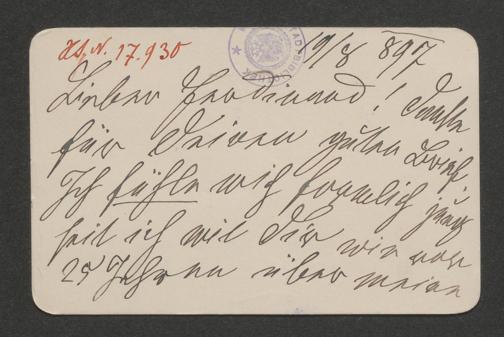 H.I.N. 17.930
19/8 897
Lieber Ferdinand! Danke
für Deinen guten Brief.
Ich fühle mich förmlich jung
seit ich mit Dir wie vor
25 Jahren über meine